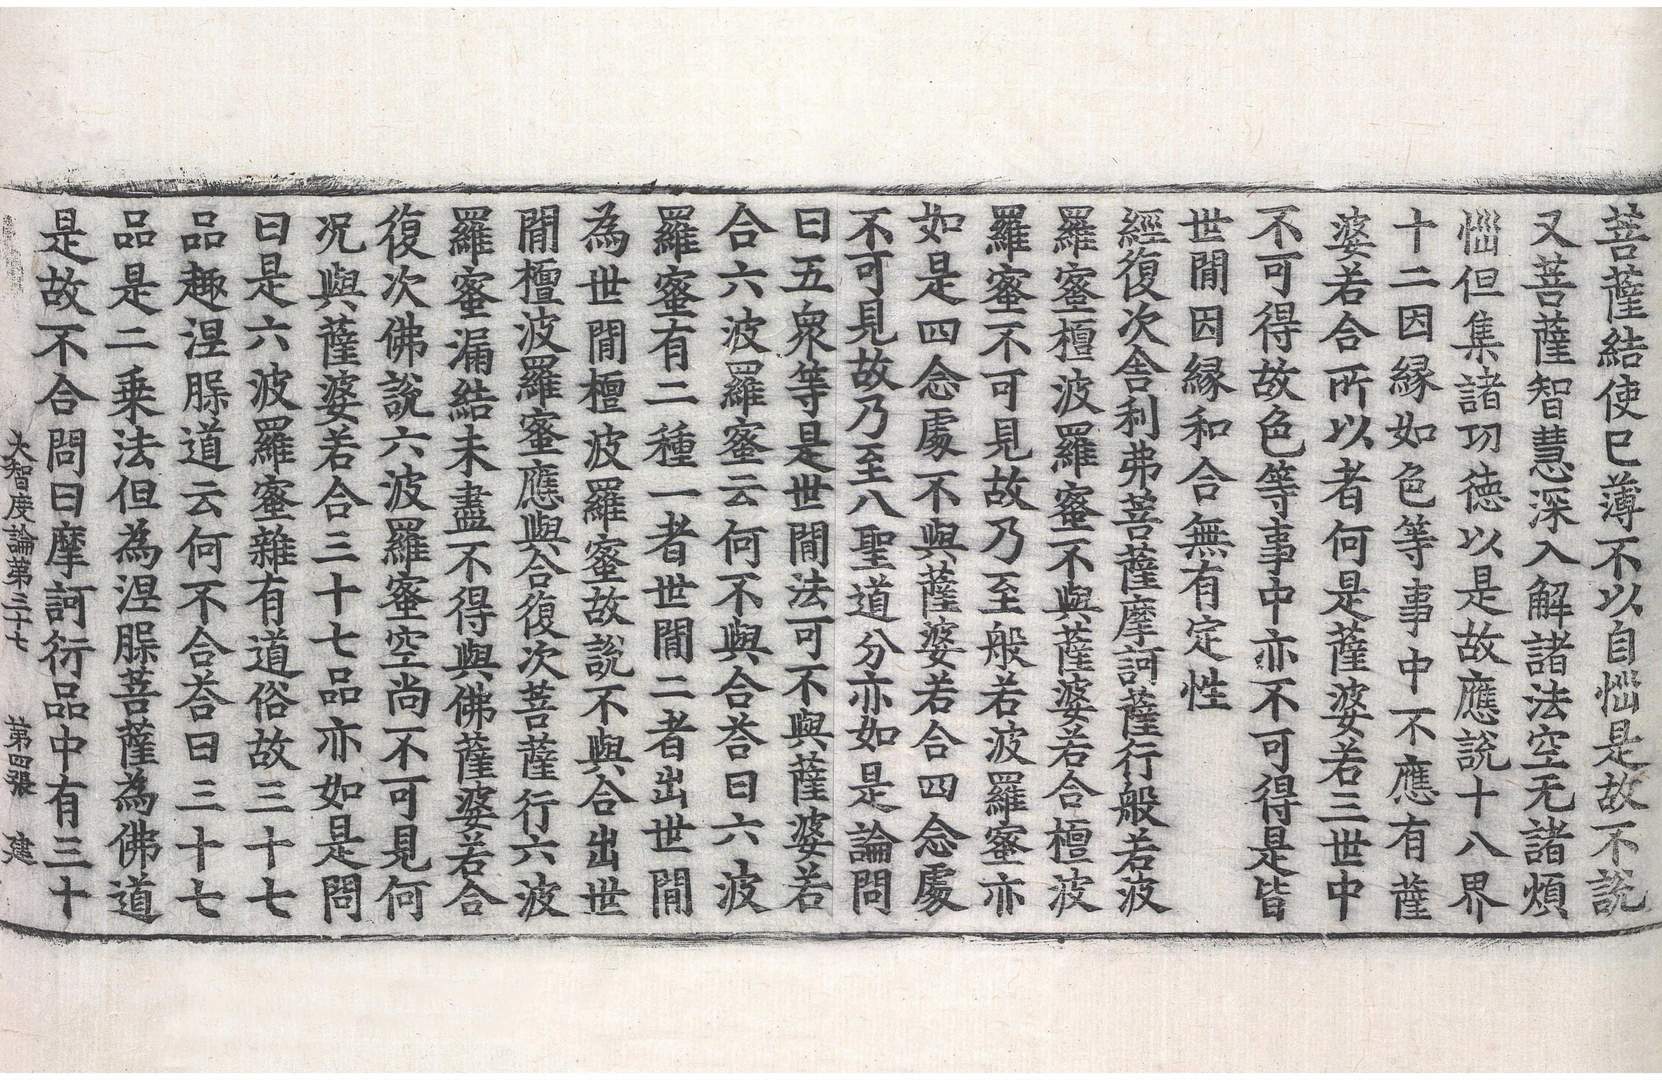 菩薩結使已薄不以自惱是故不說
又菩薩智慧深入解諸法空无諸煩
惱但集諸功德以是故應說十八界
十二因縁如色等事中不應有薩
婆若合所以者何是薩婆若三世中
不可得故色等事中亦不可得是皆
世間因縁和合無有定性
經復次舍利弗菩薩摩訶薩行般若波
羅蜜檀波羅蜜不與薩婆若合檀波
羅蜜不可見故乃至般若波羅蜜亦
如是四念處不與薩婆若合四念處
不可見故乃至八聖道分亦如是論問
曰五衆等是世間法可不與薩婆若
合六波羅蜜云何不與合荅曰六波
羅蜜有二種一者世間二者出世間
為世間檀波羅蜜故說不與合出世
間檀波羅蜜應與合復次菩薩行六波
羅蜜漏結未盡不得與佛薩婆若合
復次佛說六波羅蜜空尚不可見何
况與薩婆若合三十七品亦如是問
曰是六波羅蜜雜有道俗故三十七
品趣涅槃道云何不合荅曰三十七
品是二乗法但為涅槃菩薩為佛道
是故不合問曰摩訶衍品中有三十
大智度論第三十七 第四張 建